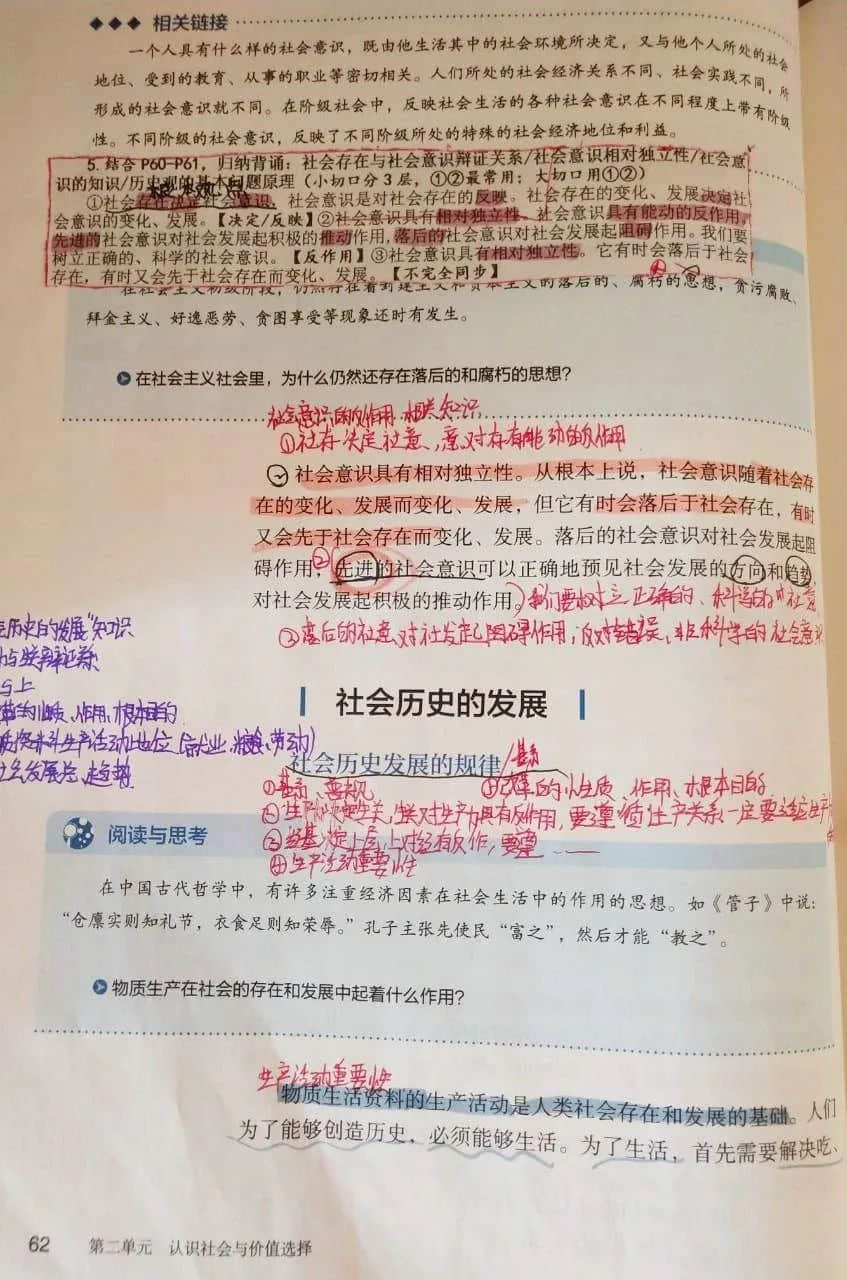 ◆◆◆ 相关链接
一个人具有什么样的社会意识，既由他生活其中的社会环境所决定，又与他个人所处的社会
地位、受到的教育、从事的职业等密切相关。人们所处的社会经济关系不同、社会实践不同，所
形成的社会意识就不同。在阶级社会中，反映社会生活的各种社会意识在不同程度上带有阶级
性。不同阶级的社会意识，反映了不同阶级所处的特殊的社会经济地位和利益。
5. 结合 P60-P61，归纳背诵：社会存在与社会意识辩证关系/社会意识相对独立性/社会意
识的知识/历史观的基本问题原理（小切口分 3 层，①②最常用；大切口用①②）
①社会存在决定社会意识。社会意识是对社会存在的反映。社会存在的变化、发展决定社
会意识的变化、发展。【决定/反映】②社会意识具有相对独立性。社会意识具有能动的反作用。
先进的社会意识对社会发展起积极的推动作用，落后的社会意识对社会发展起阻碍作用。我们要
树立正确的、科学的社会意识。【反作用】③社会意识具有相对独立性。它有时会落后于社会
存在，有时又会先于社会存在而变化、发展。【不完全同步】
在社会主义初级阶段，仍然存在着封建主义和资本主义的落后的、腐朽的思想，贪污腐败、
拜金主义、好逸恶劳、贪图享受等现象还时有发生。
在社会主义社会里，为什么仍然还存在落后的和腐朽的思想？
社会意识的反作用 相关知识
①社存决定社意、意对存有能动的反作用
社会意识具有相对独立性。从根本上说，社会意识随着社会存
在的变化、发展而变化、发展，但它有时会落后于社会存在，有时
又会先于社会存在而变化、发展。落后的社会意识对社会发展起阻
碍作用，②先进的社会意识可以正确地预见社会发展的方向和趋势，
对社会发展起积极的推动作用。我们要树立正确的、科学的社意
③落后的社意对社发起阻碍作用，反对错误、非科学的社会意识
历史的发展"知识
社会历史的发展
社会历史发展的规律/基本
①基本矛盾 ⑤改革的性质、作用、根本目的
②生产力决定生关，生关对生产力具有反作用，要遵循生产关系一定要适应生产力
③经基决定上层，上对经有反作，要遵
④生产活动重要性
阅读与思考
在中国古代哲学中，有许多注重经济因素在社会生活中的作用的思想。如《管子》中说：
“仓廪实则知礼节，衣食足则知荣辱。”孔子主张先使民“富之”，然后才能“教之”。
物质生产在社会的存在和发展中起着什么作用？
生产活动重要性
物质生活资料的生产活动是人类社会存在和发展的基础。人们
为了能够创造历史，必须能够生活。为了生活，首先需要解决吃、
62 第二单元 认识社会与价值选择